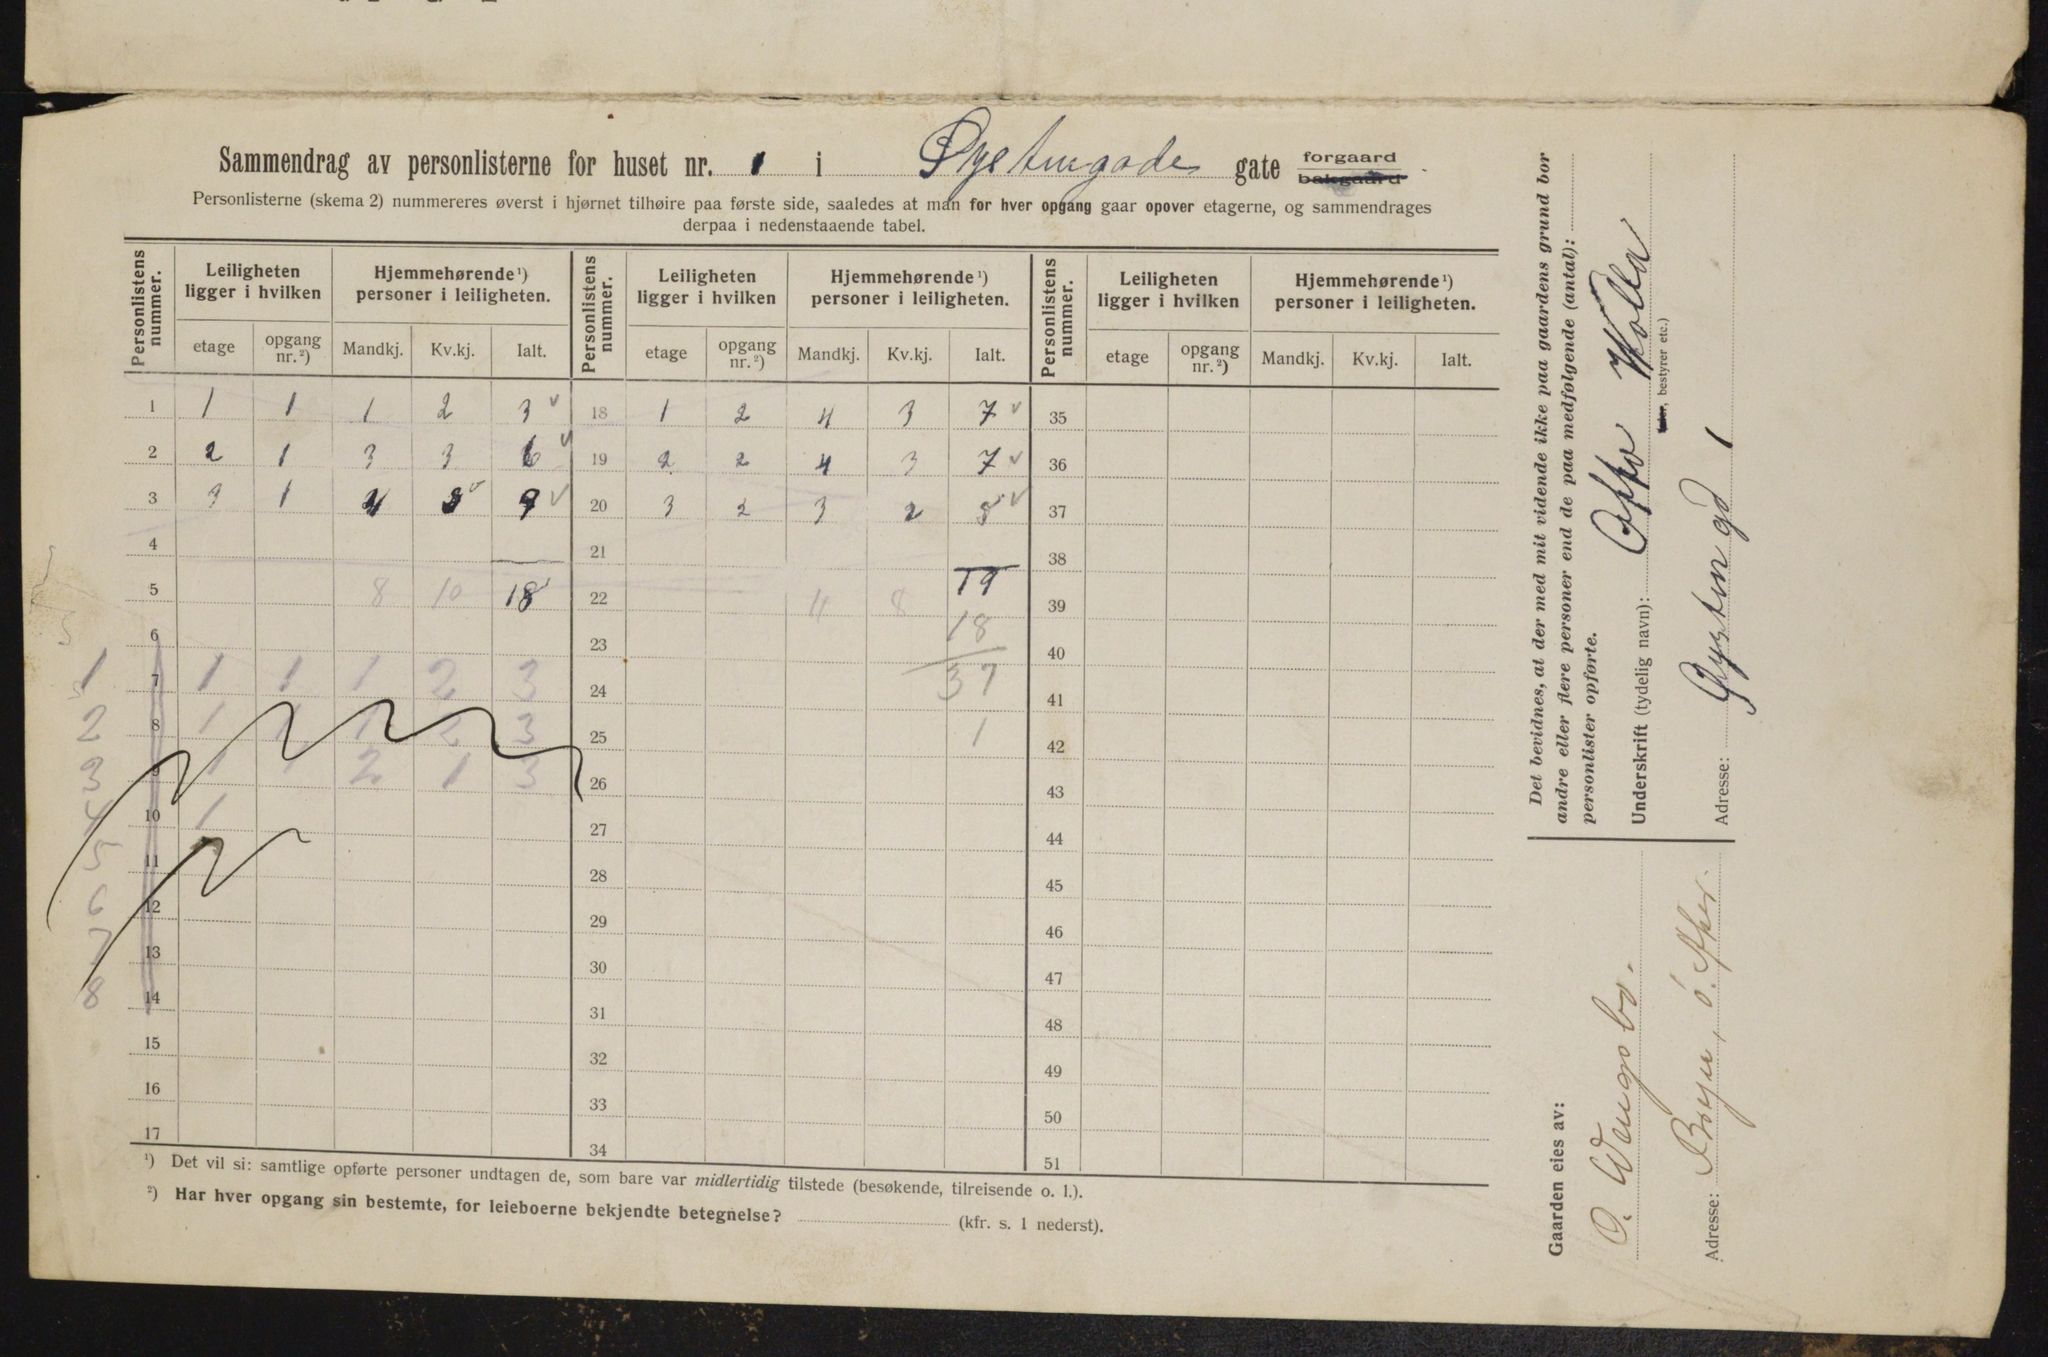 Sammendrag av personlisterne for huset nr. 1 i Øystengade gate forgaard bakgaard
Personlisterne (skema 2) nummereres øverst i hjørnet tilhøire paa første side, saaledes at man for hver opgang gaar opover etagerne, og sammendrages
derpaa i nedenstaaende tabel.
Personlistens nummer. Leiligheten ligger i hvilken Hjemmehørende ¹) personer i leiligheten. Personlistens nummer. Leiligheten ligger i hvilken Hjemmehørende ¹) personer i leiligheten. Personlistens nummer. Leiligheten ligger i hvilken Hjemmehørende ¹) personer i leiligheten.
etage opgang nr. ²) Mandkj. Kv.kj. Ialt. etage opgang nr. ²) Mandkj. Kv.kj. Ialt. etage opgang nr. ²) Mandkj. Kv.kj. Ialt.
1 1 1 1 2 3 18 1 2 4 3 7 35
2 2 1 3 3 6 19 2 2 4 3 7 36
3 3 1 4 5 9 20 3 2 3 2 5 37
4 21 38
5 8 10 18 22 11 8 19 39
6 23 18 40
1 7 1 1 1 2 3 24 37 41
2 8 1 1 1 2 3 25 1 42
3 9 1 1 2 1 3 26 43
4 10 1 27 44
5 11 28 45
6 12 29 46
7 13 30 47
8 14 31 48
15 32 49
16 33 50
17 34 51
¹) Det vil si: samtlige opførte personer undtagen de, som bare var midlertidig tilstede (besøkende, tilreisende o. l.).
²) Har hver opgang sin bestemte, for leieboerne bekjendte betegnelse? (kfr. s. 1 nederst).
Det bevidnes, at der med mit vidende ikke paa gaardens grund bor
andre eller flere personer end de paa medfølgende (antal):
personlister opførte.
Underskrift (tydelig navn):
bestyrer etc.)
Adresse: Øysten gd 1
Gaarden eies av:
O. Wengs bo.
Adresse: